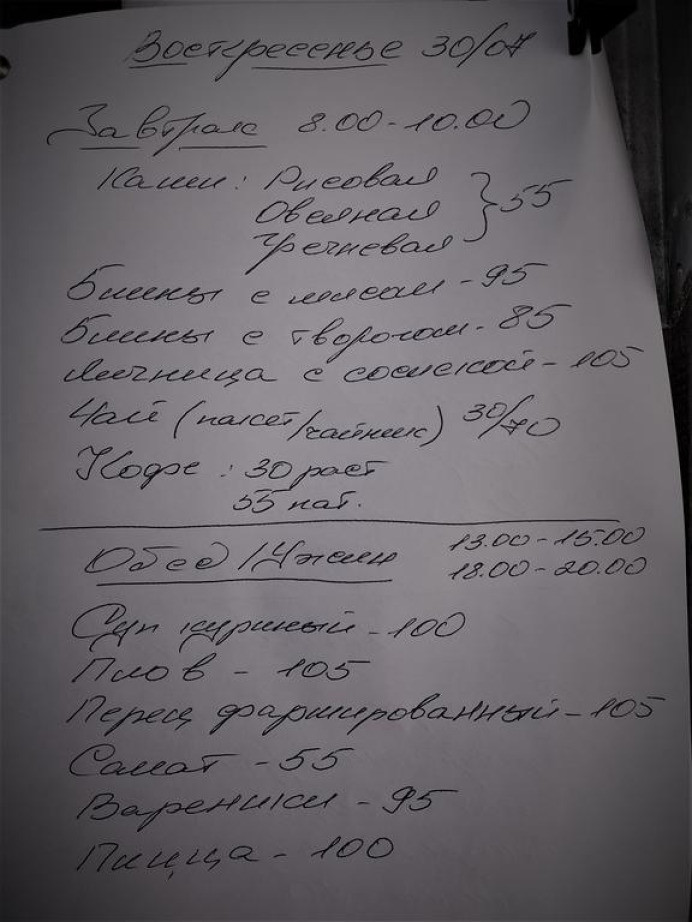 Воскресенье 30/07
Завтрак 8.00-10.00
Каши: Рисовая
Овсяная } 55
Гречневая
Блины с мясом - 95
Блины с творогом - 85
Яичница с сосиской - 105
Чай (пакет/чайник) 30/70
Кофе : 30 раст
55 нат.
Обед/Ужин 13.00-15.00
18.00-20.00
Суп куриный - 100
Плов - 105
Перец фаршированный - 105
Салат - 55
Вареники - 95
Пицца - 100